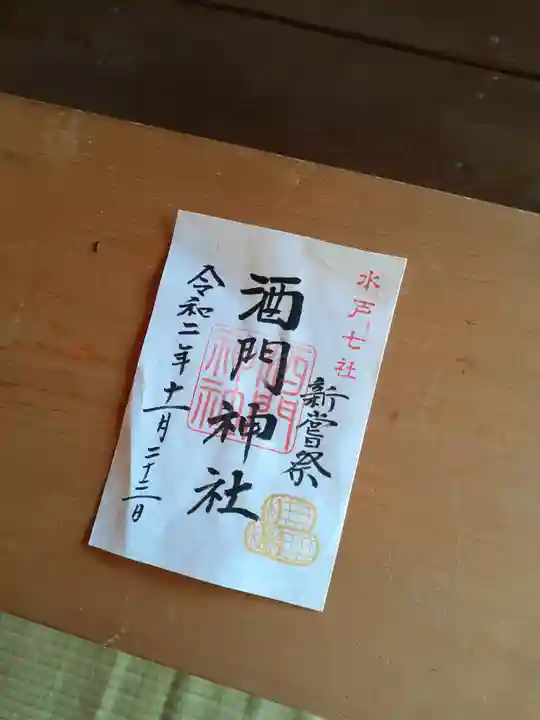 水戸七社
新嘗祭
酒門神社
令和二年十一月二十二日